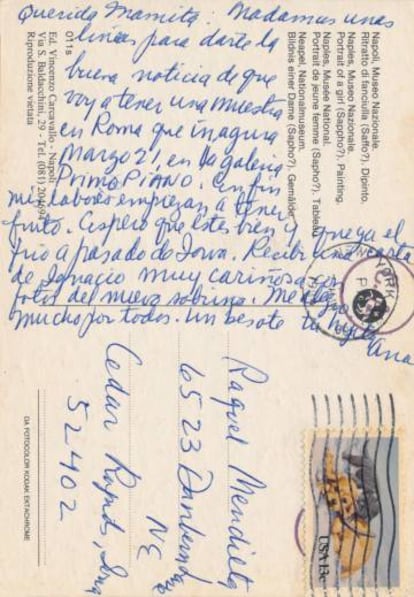 Querida Mamita. Madamas unas
lineas para darte la
buena noticia de que
voy a tener una muestra
en Roma que inagura
Marzo 21, en la galeria
PrimoPIANO. en fin
mis labores empiezan a tener
fruto. Espero que estes bien y que ya el
frio a pasado de Iowa. Recibi una carta
de Ignacio muy cariñosa con
fotos del nuevo sobrino. Me alegro
mucho por todos. Un besote tu hija
Ana
Napoli, Museo Nazionale.
Ritratto di fanciulla (Saffo?). Dipinto.
Naples, Museo Nazionale.
Portrait of a girl (Sappho?). Painting.
Naples, Musée National.
Portrait de jeune femme (Sapho?). Tableau
Neapel, Nationalmuseum.
Bildnis einer Dame (Sapho?). Gemälde.
0118
Ed. Vincenzo Carcavallo - Napoli
Via S. Baldacchini, 29 - Tel. (081) 204694
Riproduzione vietata
Raquel Mendieta
6523
NE
Cedar Rapids, Iowa
52402
DA FOTOCOLOR KODAK EKTACHROME
YORK
USA 13c